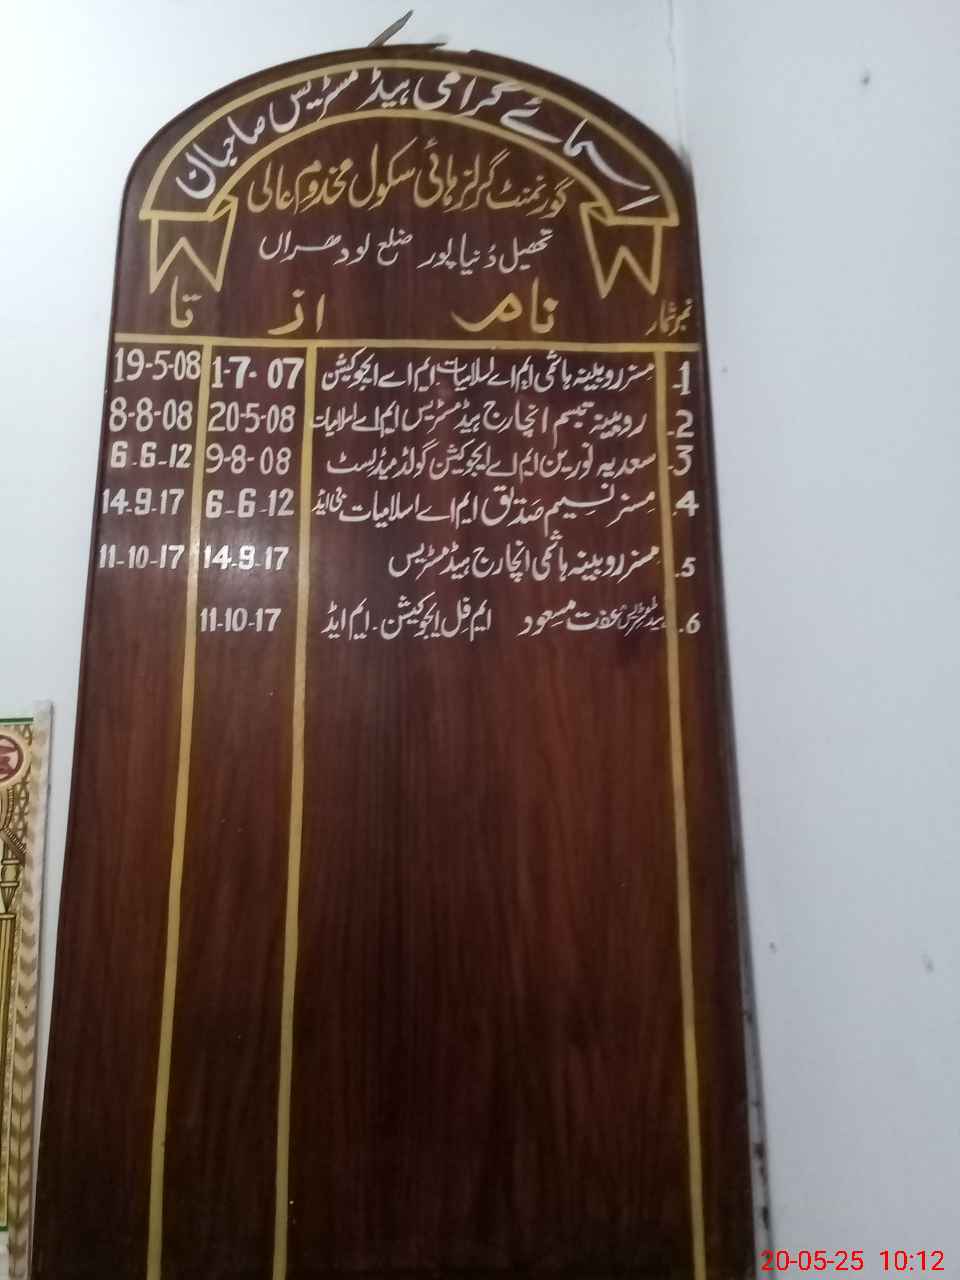 اسمائے گرامی ہیڈ مسٹریس صاحبان
گورنمنٹ گرلز ہائی سکول مخدوم عالی
تحصیل دُنیا پور ضلع لودھراں
نمبر شمار نام از تا
1. مسز روبینہ ہاشمی ایم اے اسلامیات، ایم اے ایجوکیشن 1-7-07 19-5-08
2. روبینہ تبسم انچارج ہیڈ مسٹریس ایم اے اسلامیات 20-5-08 8-8-08
3. سعدیہ نورین ایم اے ایجوکیشن گولڈ میڈلسٹ 9-8-08 6-6-12
4. مسز نسیم صدیق ایم اے اسلامیات بی ایڈ 6-6-12 14.9.17
5. مسز روبینہ ہاشمی انچارج ہیڈ مسٹریس 14.9.17 11-10-17
6. ہیڈ مسٹریس عفت مسعود ایم فل ایجوکیشن - ایم ایڈ 11-10-17
20-05-25 10:12